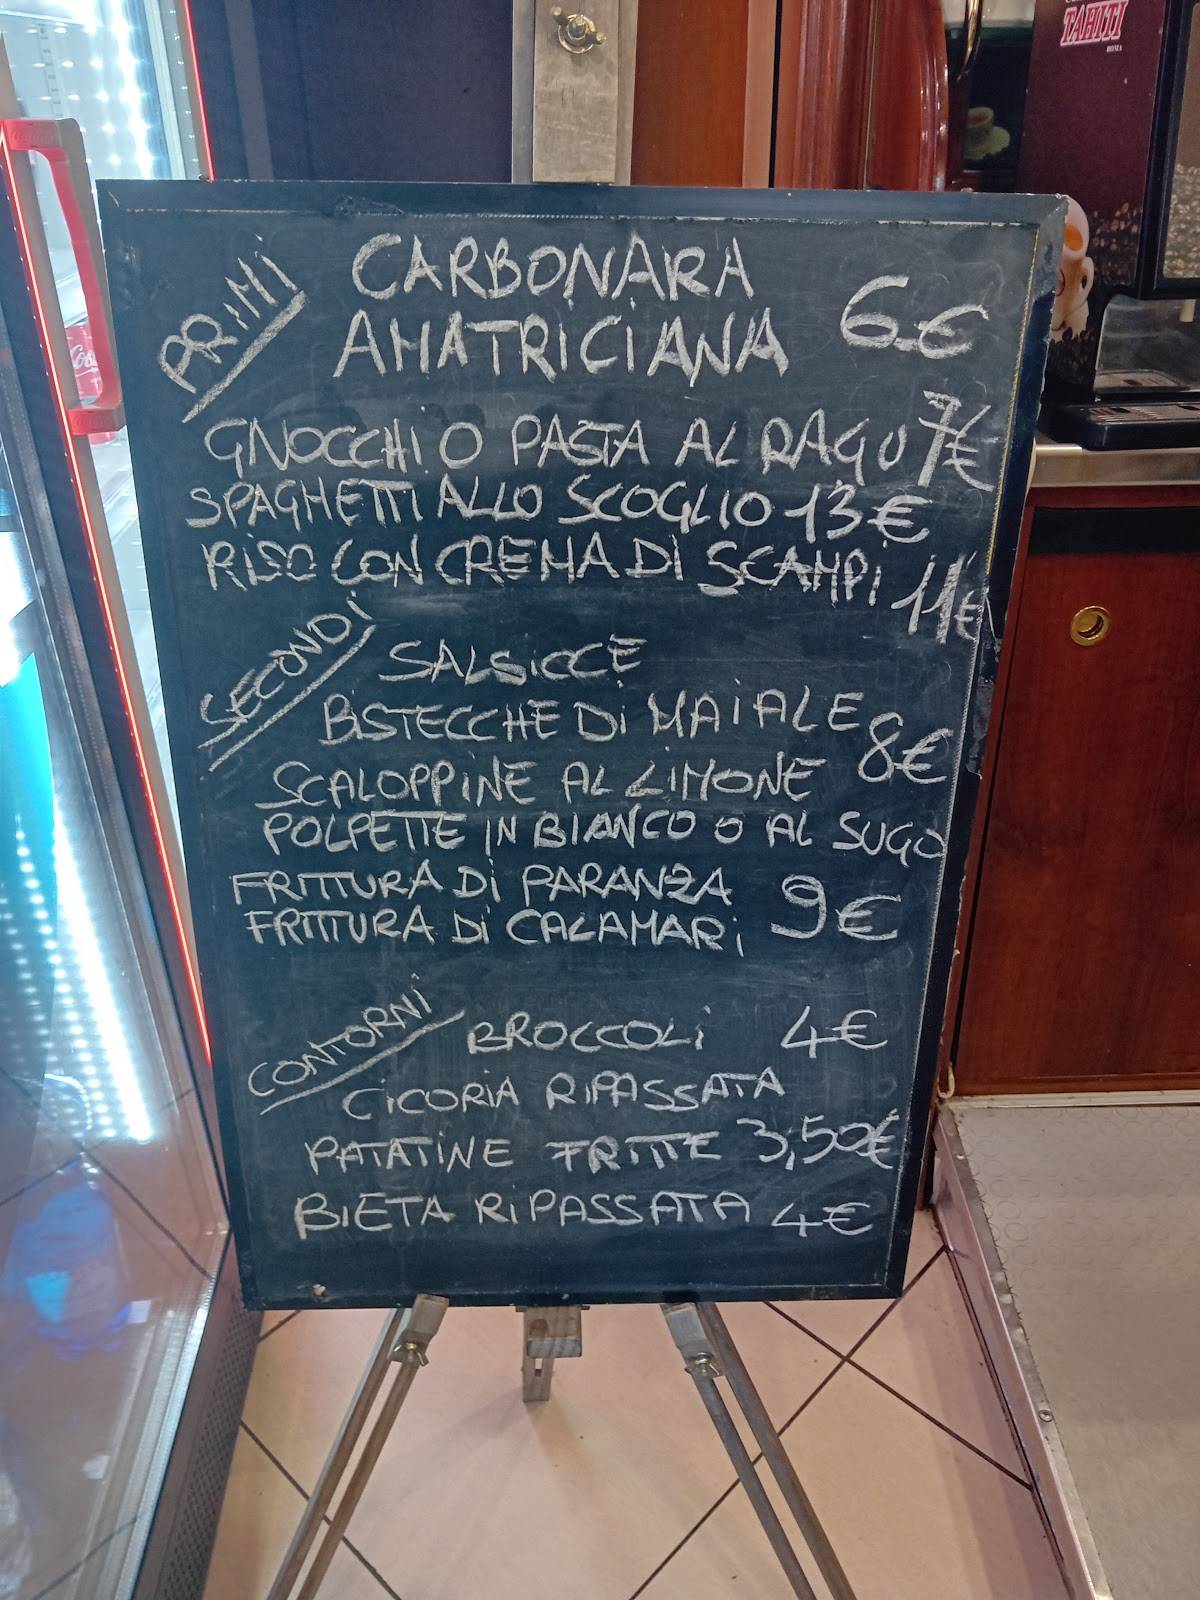 TAHITI
ROMA
PRIMI
CARBONARA
AMATRICIANA 6.€
GNOCCHI O PASTA AL RAGU 7€
SPAGHETTI ALLO SCOGLIO 13€
RISO CON CREMA DI SCAMPI 11€
SECONDI
SALSICCE
BISTECCHE DI MAIALE
SCALOPPINE AL LIMONE 8€
POLPETTE IN BIANCO O AL SUGO
FRITTURA DI PARANZA
FRITTURA DI CALAMARI 9€
CONTORNI
BROCCOLI 4€
CICORIA RIPASSATA
PATATINE FRITTE 3,50€
BIETA RIPASSATA 4€